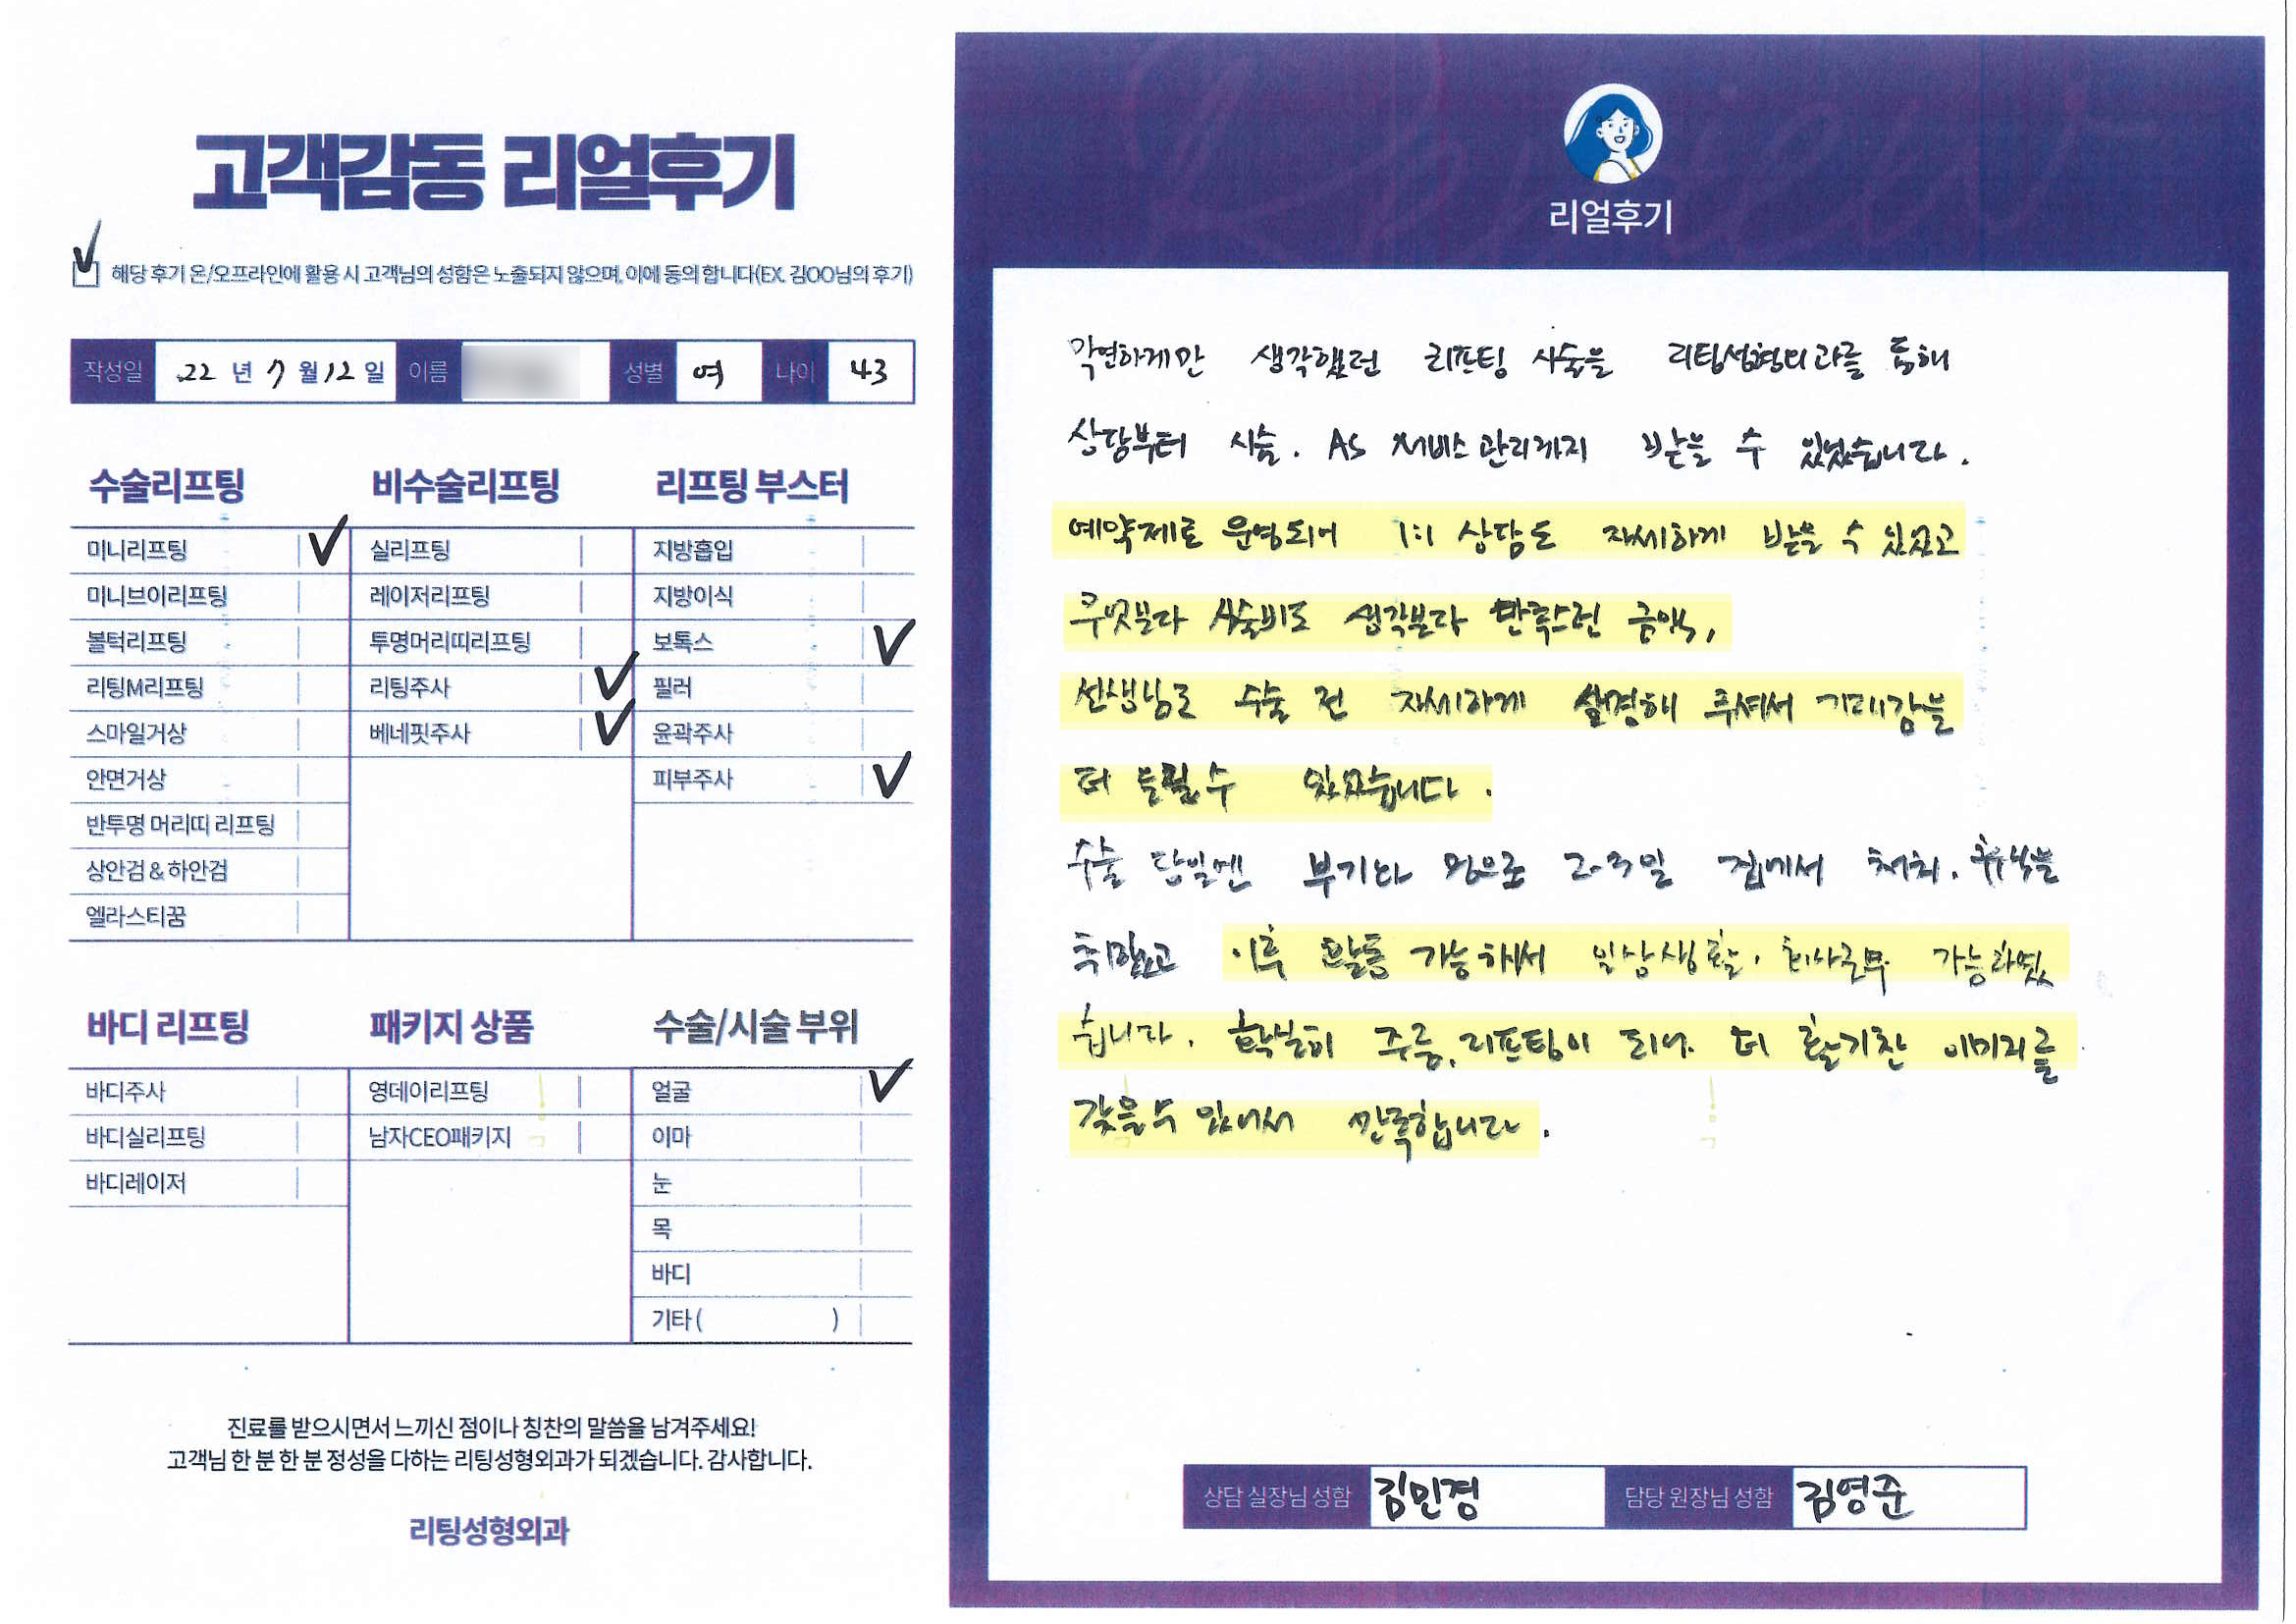 고객감동 리얼후기
해당 후기 온/오프라인에 활용 시 고객님의 성함은 노출되지 않으며, 이에 동의 합니다(EX. 김OO님의 후기)
작성일 22 년 7 월 12 일 이름 성별 여 나이 43
수술리프팅
미니리프팅
미니브이리프팅
볼턱리프팅
리팅M리프팅
스마일거상
안면거상
반투명 머리띠 리프팅
상안검 & 하안검
엘라스티꿈
비수술리프팅
실리프팅
레이저리프팅
투명머리띠리프팅
리팅주사
베네핏주사
리프팅 부스터
지방흡입
지방이식
보톡스
필러
윤곽주사
피부주사
바디 리프팅
바디주사
바디실리프팅
바디레이저
패키지 상품
영데이리프팅
남자CEO패키지
수술/시술 부위
얼굴
이마
눈
목
바디
기타 ( )
진료를 받으시면서 느끼신 점이나 칭찬의 말씀을 남겨주세요!
고객님 한 분 한 분 정성을 다하는 리팅성형외과가 되겠습니다. 감사합니다.
리팅성형외과
리얼후기
막연하게만 생각했던 리프팅 시술을 리팅성형외과를 통해
상담부터 시술. AS 서비스 관리까지 받을 수 있었습니다.
예약제로 운영되어 1:1 상담도 자세하게 받을 수 있었고
무엇보다 시술비도 생각보다 만족스런 금액,
선생님도 수술 전 자세하게 설명해 주셔서 기대감을
더 높일수 있었습니다.
수술 당일엔 부기와 멍으로 2~3일 집에서 처치. 휴식을
취했고 이후 활동 가능해서 일상생활. 회사근무 가능하였
습니다. 확실히 주름, 리프팅이 되니 더 활기찬 이미지를
갖을수 있어서 만족합니다.
상담 실장님 성함 김민경 담당 원장님 성함 김영준